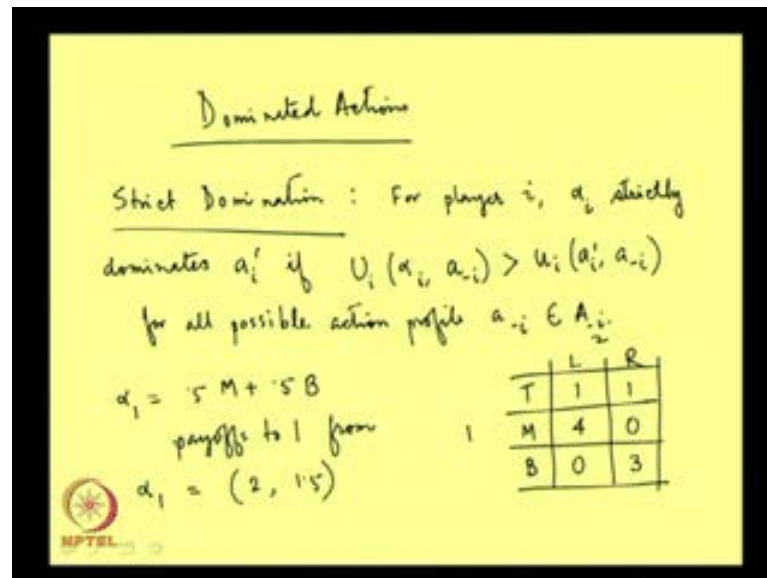 Dominated Actions
Strict Domination : For player i, αᵢ strictly
dominates aᵢ' if Uᵢ (αᵢ, a₋ᵢ) > uᵢ (aᵢ', a₋ᵢ)
for all possible action profile a₋ᵢ ∈ A₋ᵢ.
2
L R
T 1 1
1 M 4 0
B 0 3
α₁ = .5 M + .5 B
payoffs to 1 from
α₁ = (2, 1.5)
NPTEL